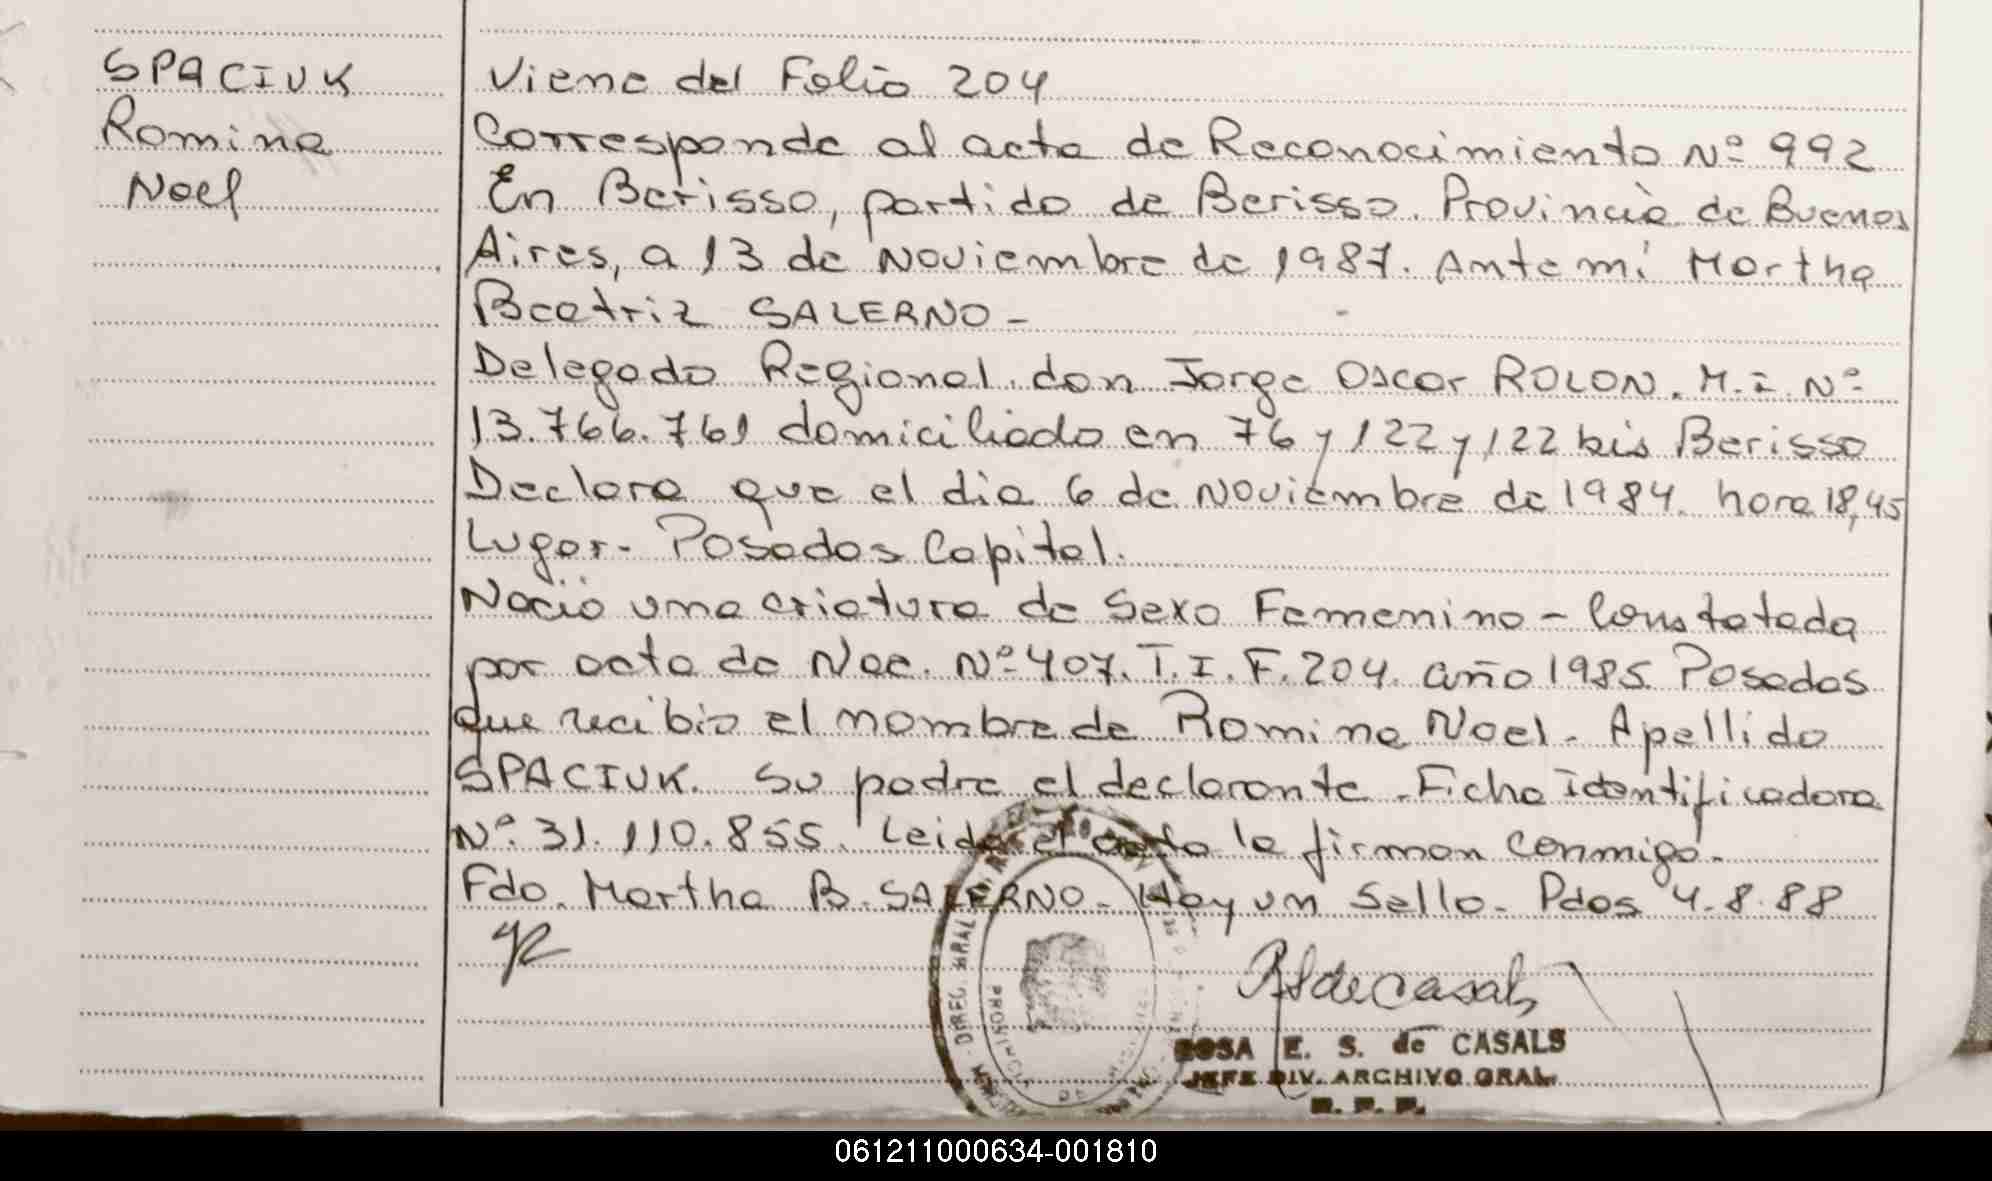 SPACIUK
Romina
Noel
Viene del Folio 204
Corresponde al acta de Reconocimiento Nº 992
En Berisso, partido de Berisso. Provincia de Buenos
Aires, a 13 de Noviembre de 1987. Ante mí Martha
Beatriz SALERNO -
Delegado Regional. don Jorge Oscar ROLON. M. I. Nº
13.766.761 domiciliado en 76 y 122 y 122 bis Berisso
Declara que el dia 6 de Noviembre de 1984. hora 18,45
Lugar - Posadas Capital.
Nacio una criatura de Sexo Femenino - Constatada
por acta de Nac. Nº 407. T. I. F. 204. año 1985. Posadas
que recibio el nombre de Romina Noel - Apellido
SPACIUK. Su padre el declarante - Ficha identificadora
Nº 31.110.855. Leida el acta la firman conmigo.
Fdo. Martha B. SALERNO - Hay un Sello - Pdas 4.8.88
DIREC. GRAL
PROVINCIA DE
ROSA E. S. de CASALS
JEFE DIV. ARCHIVO GRAL.
061211000634-001810